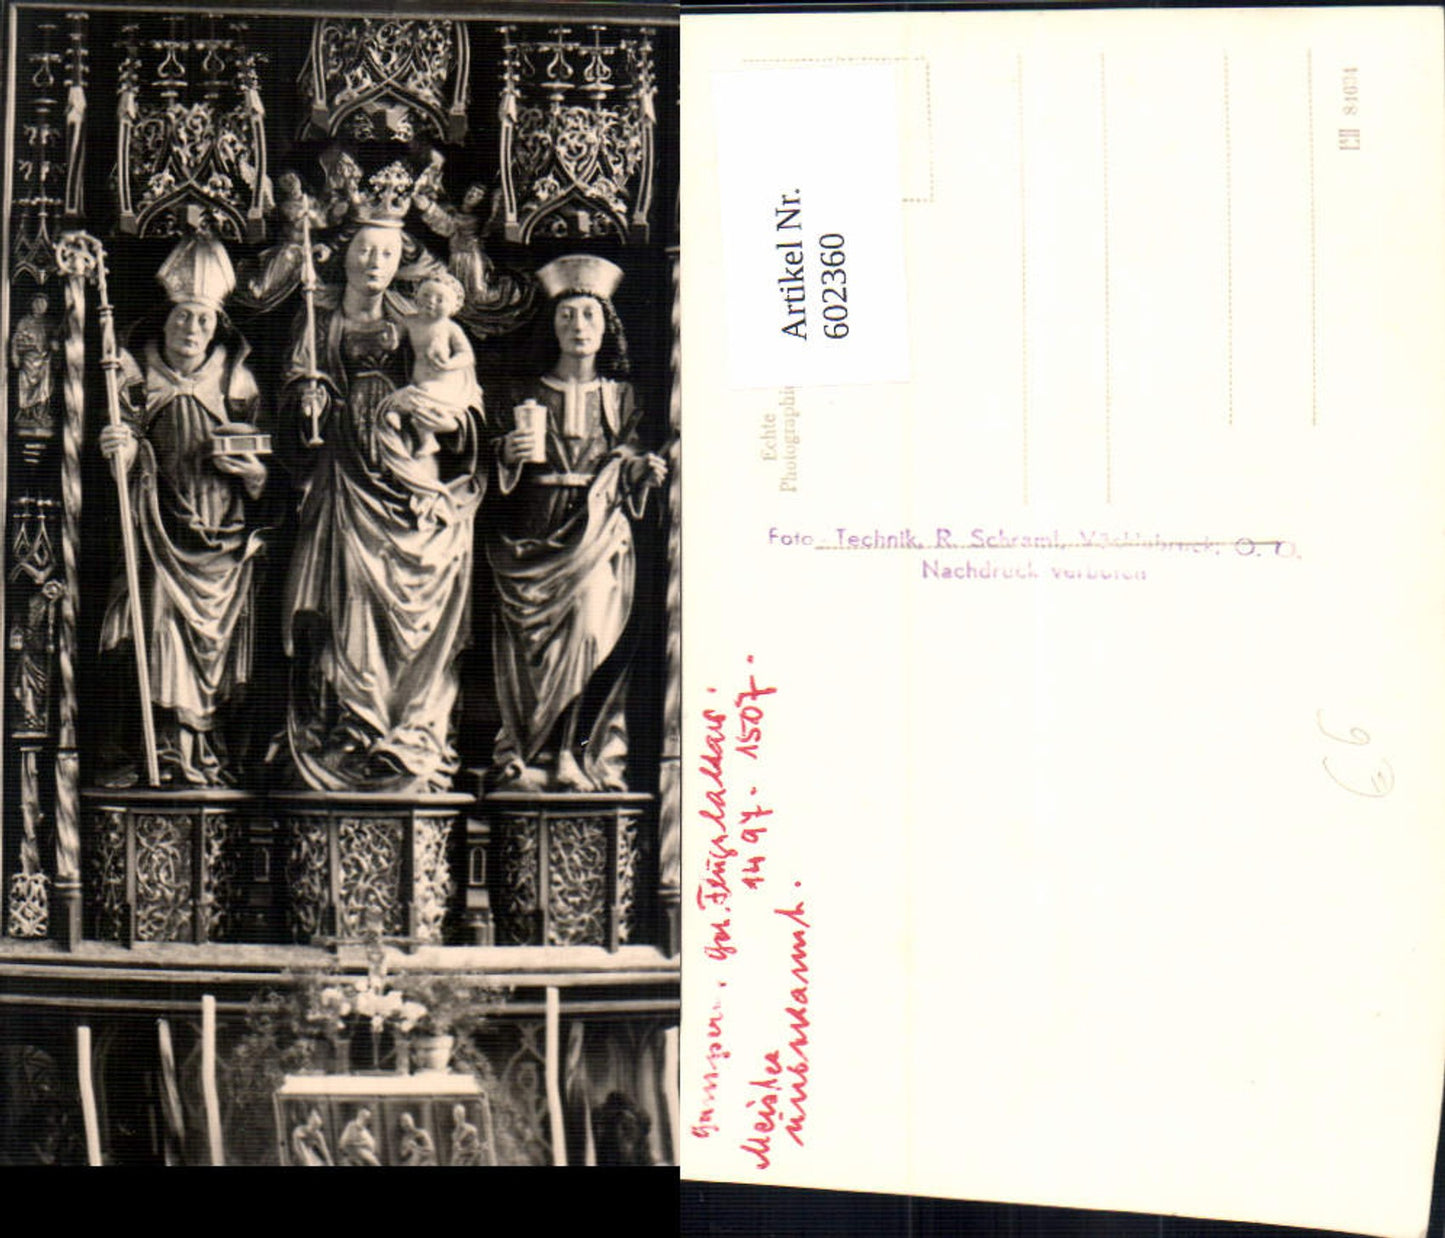 Artikel Nr.
602360
Echte
Photographie
Foto-Technik, R. Schraml, Vöcklabruck, O. Ö.
Nachdruck verboten
84604
Gampern. Got. Flügelaltar.
1497 - 1507.
Meister
unbekannt.